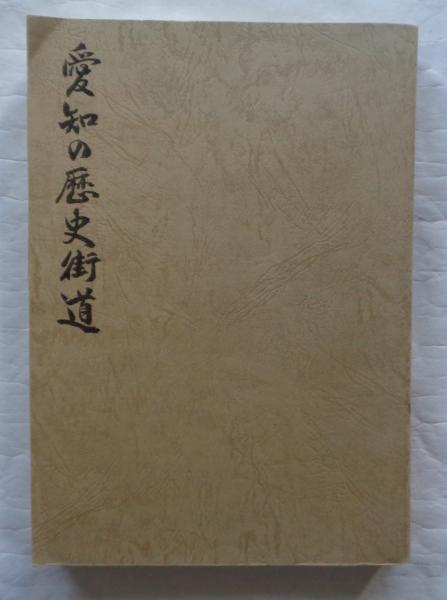 愛知の歴史街道